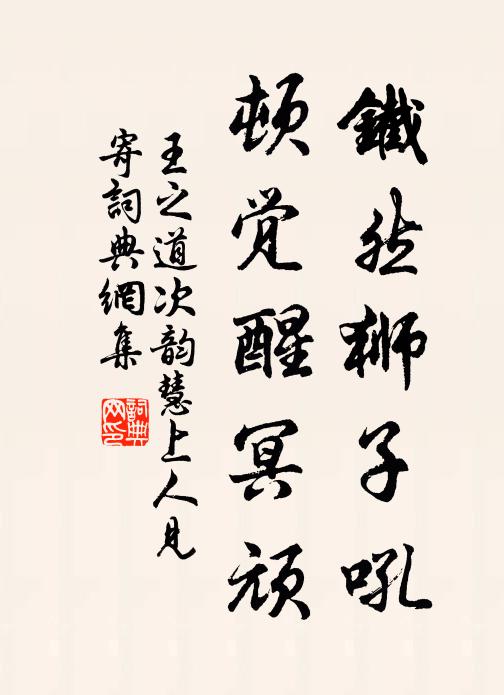 鐵然獅子吼
頓覚醒冥頑
王之道次韵慧上人見
寄詞典網集
詞典
网印